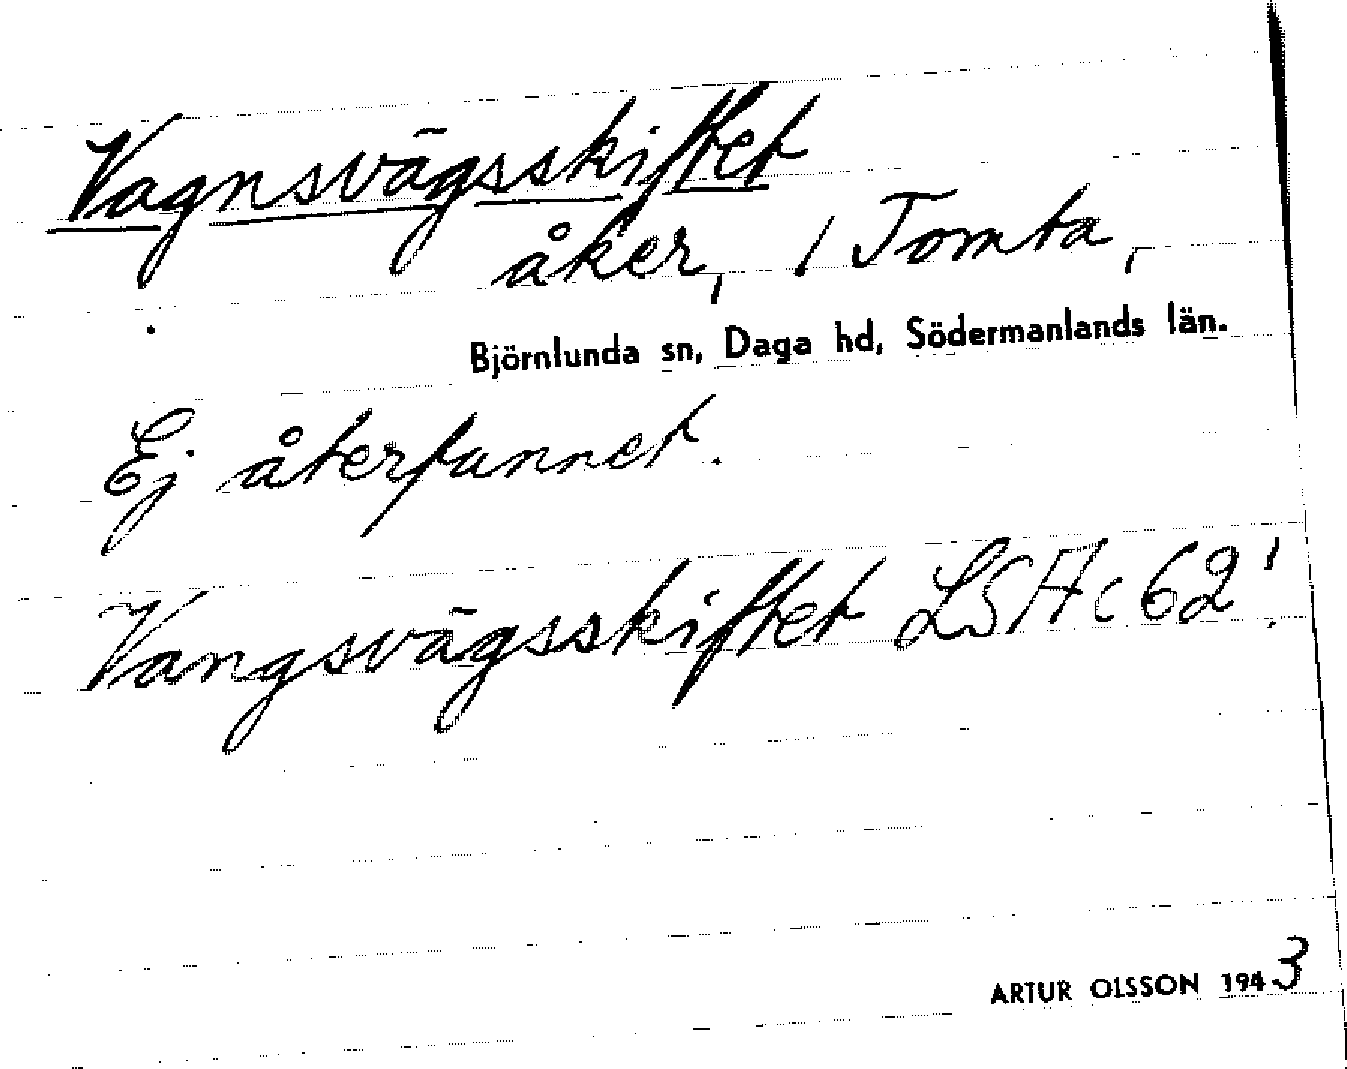 Vagnsvägsskiftet
åker, / Tomta,
Björnlunda sn, Daga hd, Södermanlands län.
Ej återfunnet.
Vangsvägsskiftet LSA c 62!
ARTUR OLSSON 1943